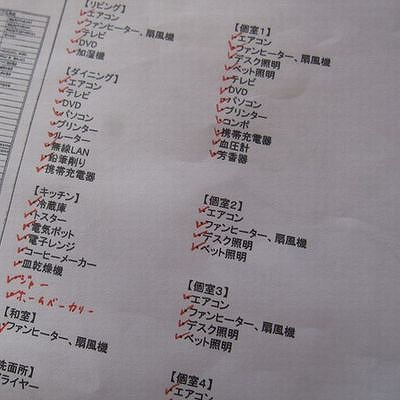 【リビング】
エアコン
ファンヒーター、扇風機
テレビ
DVD
加湿機
【ダイニング】
エアコン
テレビ
DVD
パソコン
プリンター
ルーター
無線LAN
鉛筆削り
携帯充電器
【キッチン】
冷蔵庫
トスター
電気ポット
電子レンジ
コーヒーメーカー
皿乾燥機
ジャー
ホームベーカリー
【和室】
ファンヒーター、扇風機
洗面所】
ライヤー
【個室1】
エアコン
ファンヒーター、扇風機
デスク照明
ベット照明
テレビ
DVD
パソコン
プリンター
コンポ
携帯充電器
血圧計
芳香器
【個室2】
エアコン
ファンヒーター、扇風機
デスク照明
ベット照明
【個室3】
エアコン
ファンヒーター、扇風機
デスク照明
ベット照明
【個室4】
エアコン